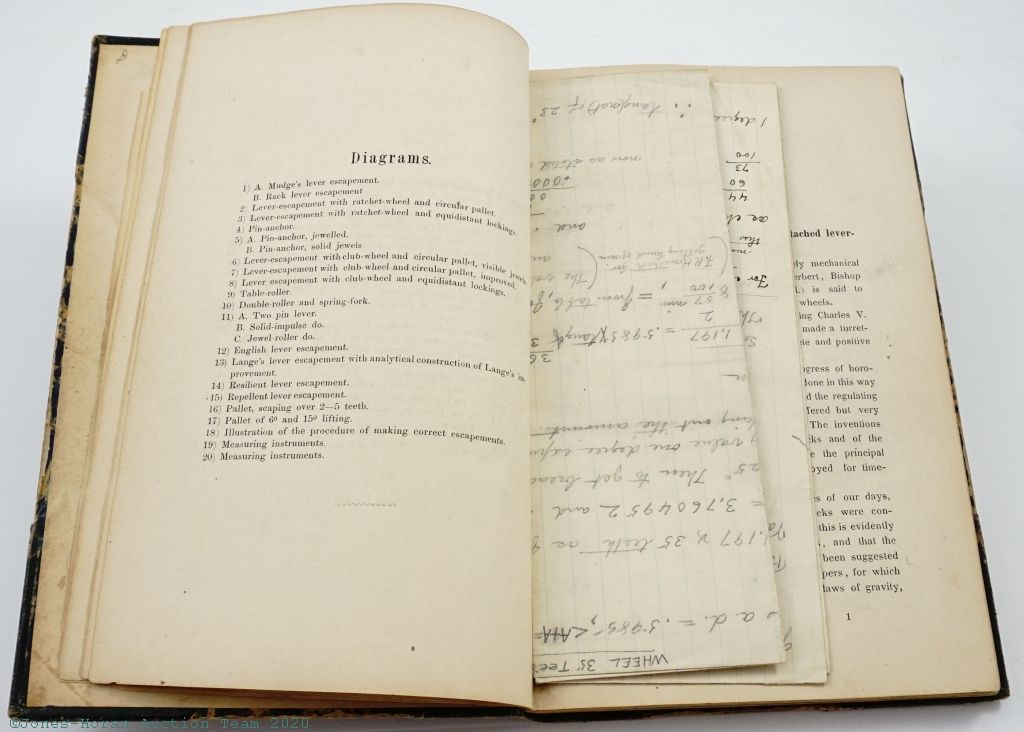 Diagrams.
1) A. Mudge's lever escapement.
B. Rack lever escapement
2) Lever-escapement with ratchet-wheel and circular pallet.
3) Lever-escapement with ratchet-wheel and equidistant lockings.
4) Pin-anchor.
5) A. Pin-anchor, jewelled.
B. Pin-anchor, solid jewels
6) Lever-escapement with club-wheel and circular pallet, visible jewels.
7) Lever-escapement with club wheel and circular pallet, improved.
8) Lever escapement with club-wheel and equidistant lockings.
9) Table-roller.
10) Double-roller and spring-fork.
11) A. Two pin lever.
B. Solid-impulse do.
C. Jewel-roller do.
12) English lever escapement.
13) Lange's lever escapement with analytical construction of Lange's im-
provement.
14) Resilient lever escapement.
15) Repellent lever escapement.
16) Pallet, scaping over 2—5 teeth.
17) Pallet of 6° and 15° lifting.
18) Illustration of the procedure of making correct escapements.
19) Measuring instruments.
20) Measuring instruments.
WHEEL 35 Tee
a.d. = .5985,
1.197 35 teeth as
= 3.760495 2 and
25° Then to get
value one degree
out the amount.
1.197
2
= .5985 tang of
57 min = from table,
8,100
The
and
now as stated
∴ tang(nat) of 23°
1 degree
100
73
60
44
tached lever-
ely mechanical
erbert, Bishop
.) is said to
wheels.
ing Charles V.
made a turret-
te and positive
ogress of horo-
done in this way
d the regulating
fered but very
The inventions
cks and of the
e the principal
oyed for time-
es of our days,
cks were con-
this is evidently
, and that the
been suggested
pers, for which
laws of gravity,
1
©Jones-Horan Auction Team 2020